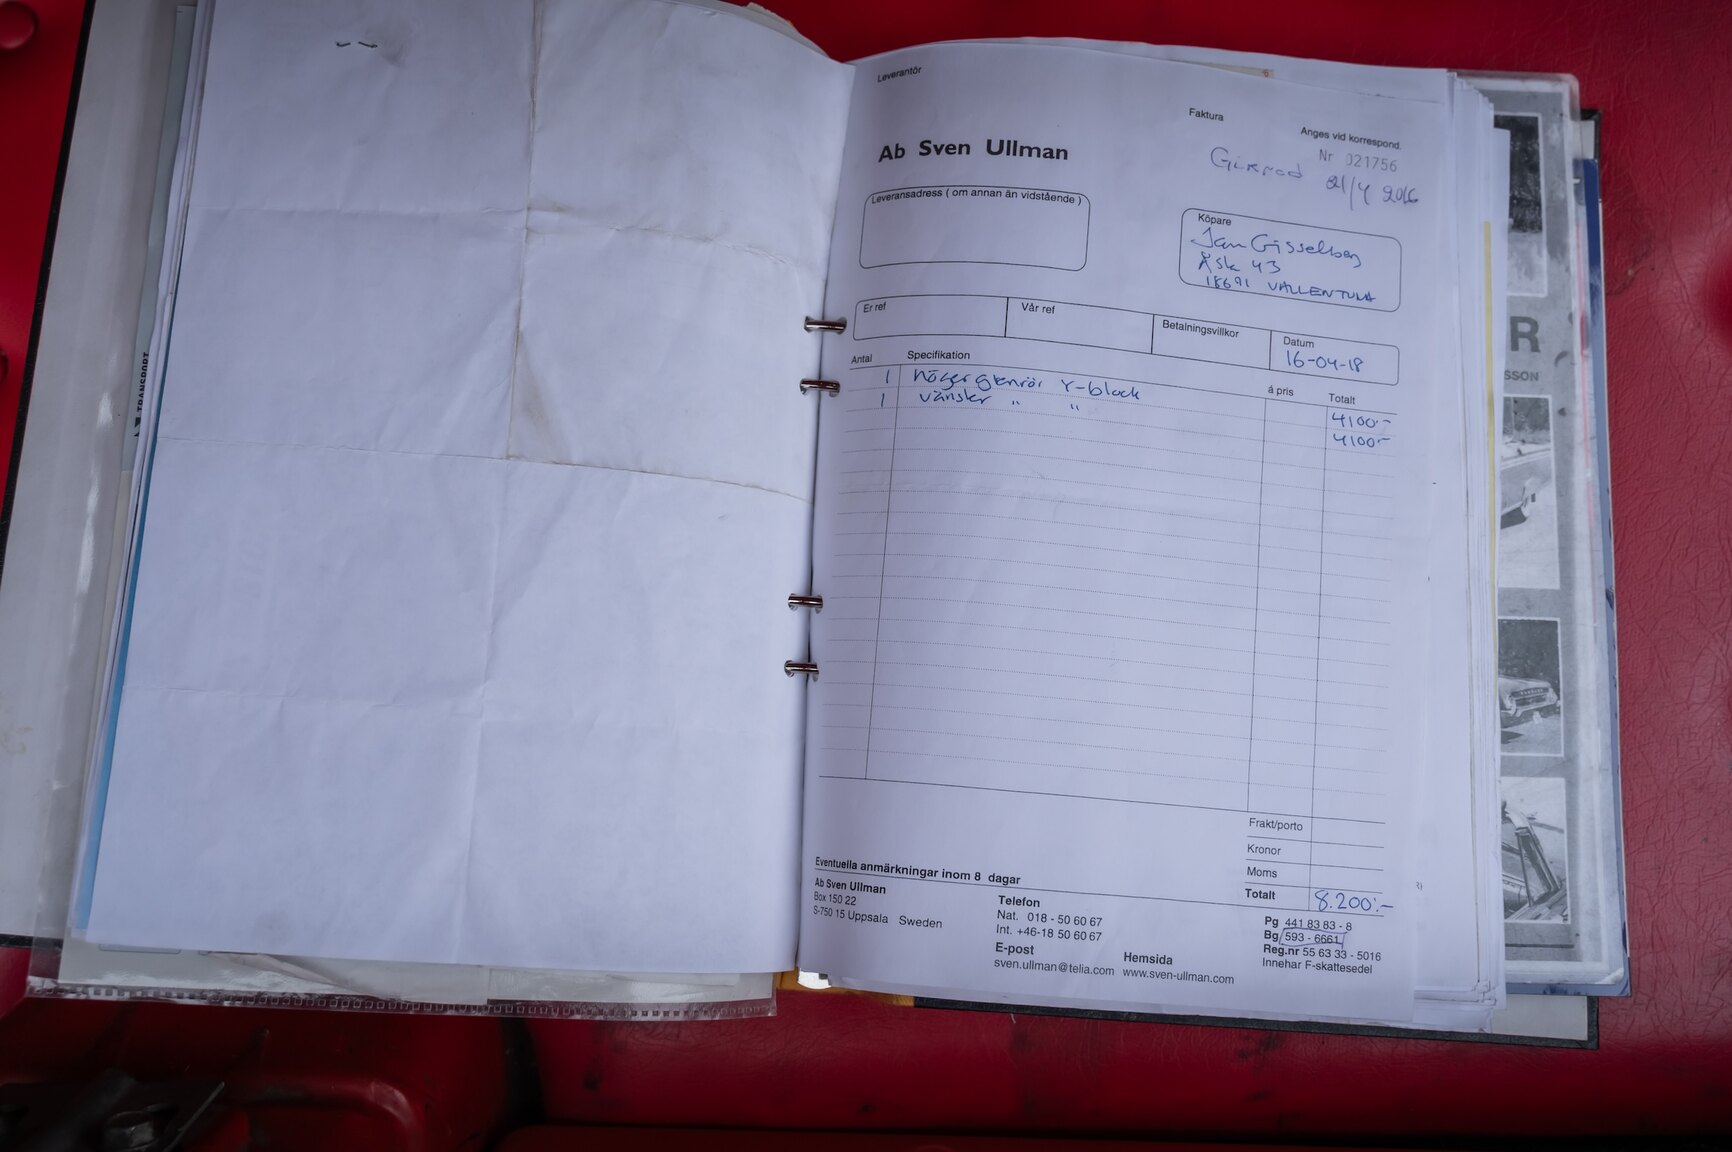 Leverantör
Faktura
Anges vid korrespond.
Ab Sven Ullman
Nr 021756
21/4 2016
Leveransadress ( om annan än vidstående )
Köpare
Jan Gisselberg
Åsk 43
18691 VALLENTUNA
Er ref
Vår ref
Betalningsvillkor
Datum
16-04-18
Antal
Specifikation
á pris
Totalt
1 höger grenrör Y-block 4100:-
1 vänster " " 4100:-
Frakt/porto
Kronor
Moms
Totalt 8.200:-
Eventuella anmärkningar inom 8 dagar
Ab Sven Ullman
Box 150 22
S-750 15 Uppsala Sweden
Telefon
Nat. 018 - 50 60 67
Int. +46-18 50 60 67
E-post
sven.ullman@telia.com
Hemsida
www.sven-ullman.com
Pg 441 83 83 - 8
Bg 593 - 6661
Reg.nr 55 63 33 - 5016
Innehar F-skattesedel
TRANSPORT
R
SSON